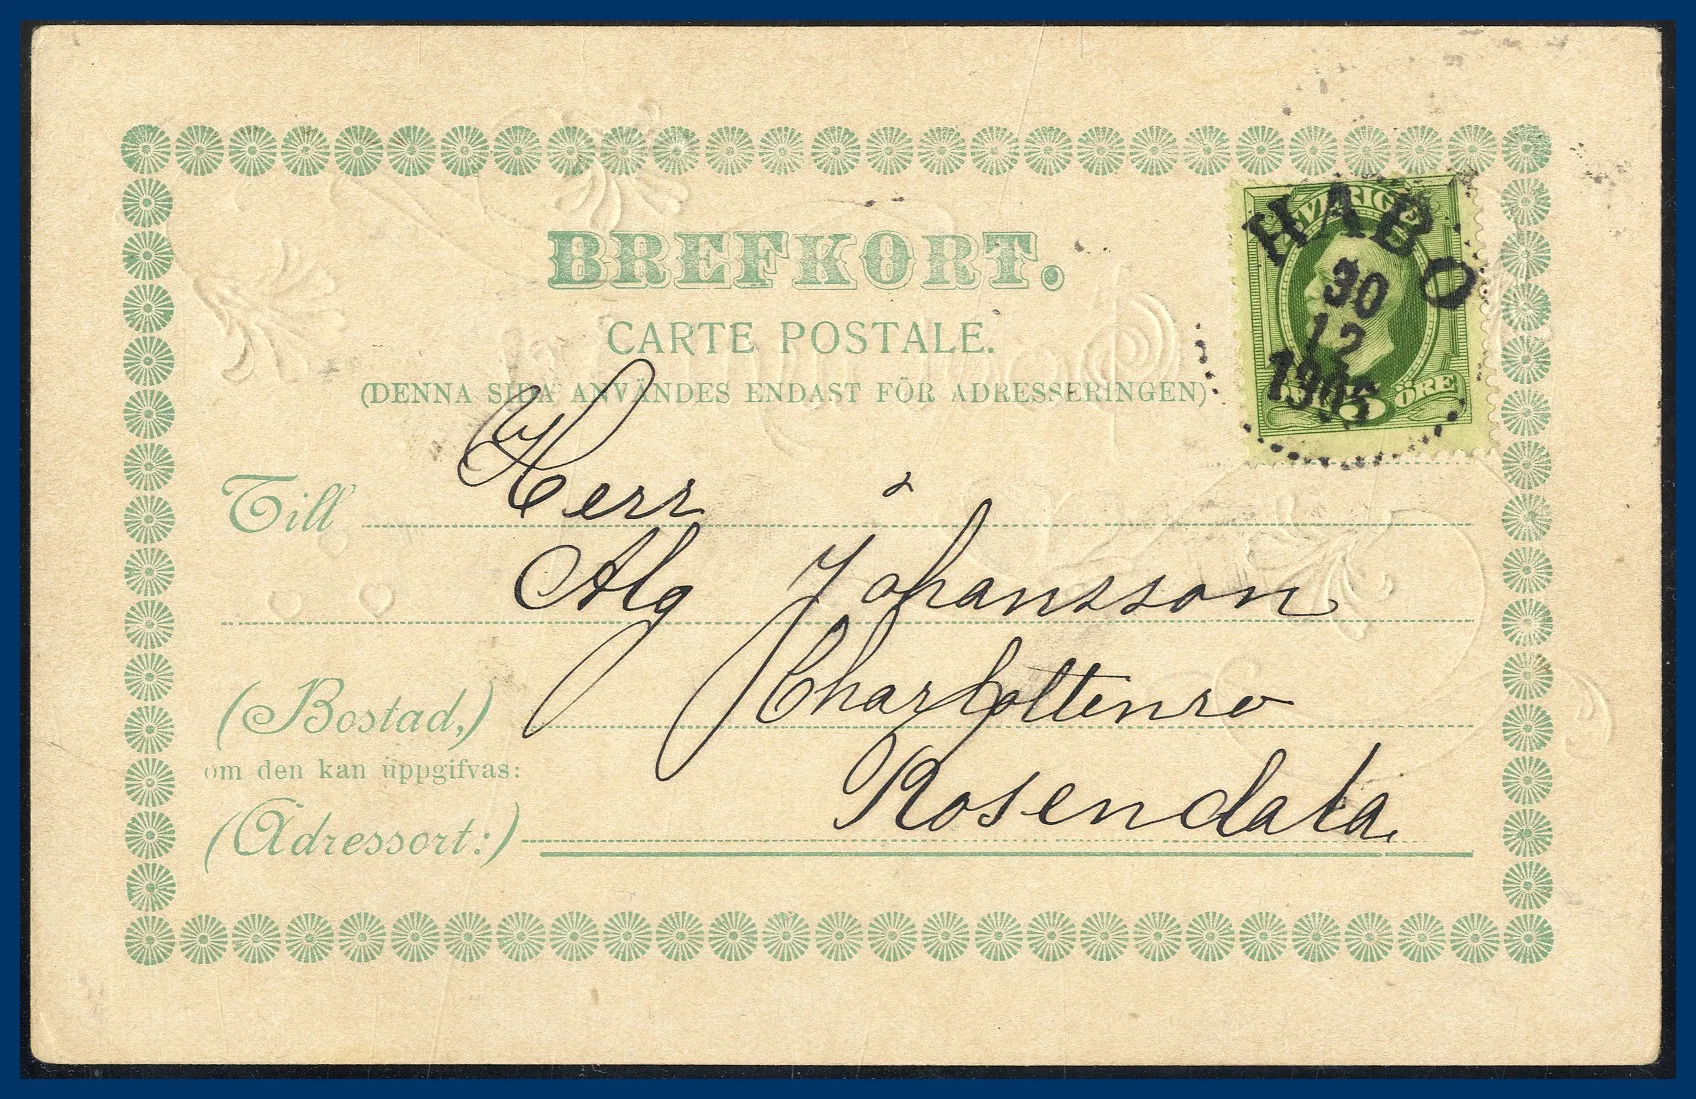 BREFKORT.
CARTE POSTALE.
(DENNA SIDA ANVÄNDES ENDAST FÖR ADRESSERINGEN)
SVERIGE
HABO
30
12
1905
ÖRE
Till Herr
Alg Johansson
(Bostad,) Charlottenro
om den kan uppgifvas:
(Adressort:) Rosendala.